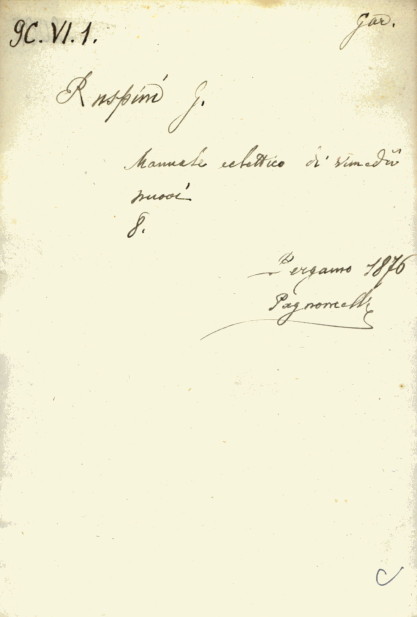 9C. VI. 1.
Gar.
Ruspini G.
Manuale eclettico di rimedii
nuovi
8.
Bergamo 1876
Pagnoncelli
C